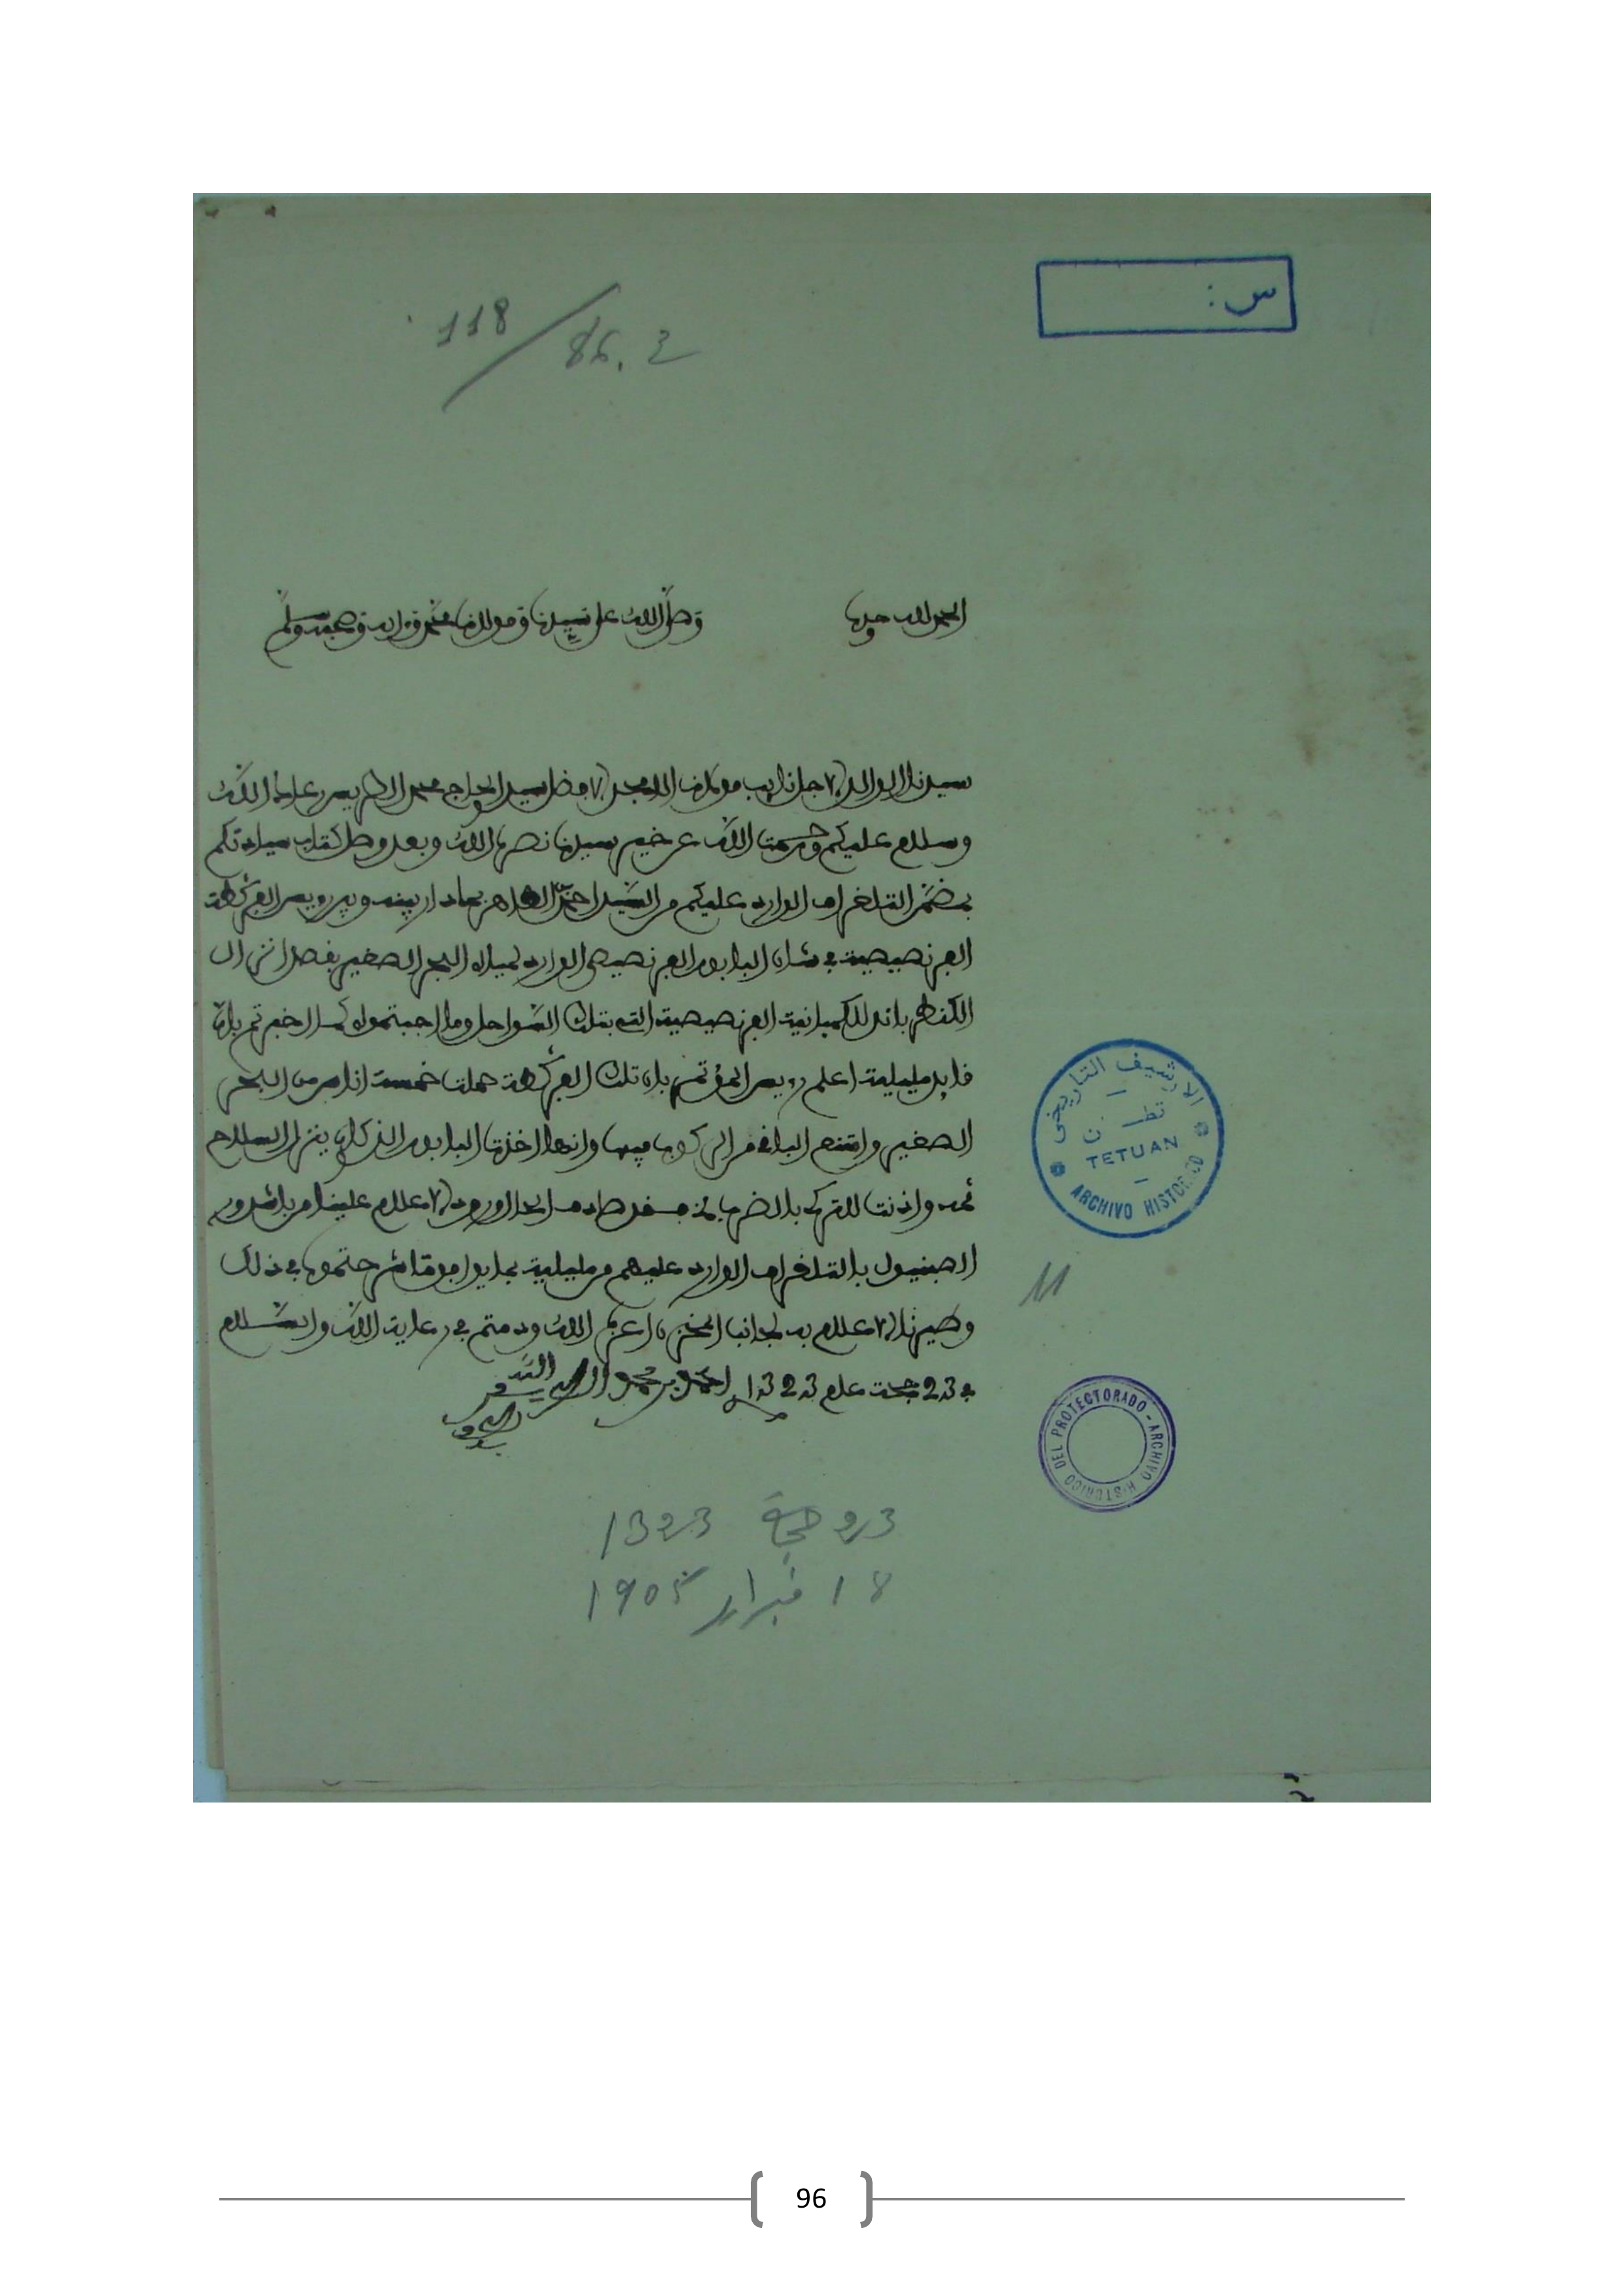 س :
118 / 86. 3
الحمد لله وحده
وصلى الله على سيدنا ومولانا محمد وءاله وصحبه وسلم
سيدنا الوالد الاجل نايب مولانا الامجد الافضل سيدي الحاج محمد الطريس رعاكم الله
وسلام عليكم ورحمت الله عن خير سيدنا نصره الله وبعد وصل كتاب سيادتكم
بمضمن التلغراف الوارد عليكم من السيد احمد الطاهر بها دار بينه وبين رويس الفركطة
الفرنصيصية في شان البابور الفرنصيصي الوارد لمياه البحر الصغير بقصد انزال
الكنطره بانه للكمبانية الفرنصيصية التي بتلك السواحل وما اجبتموه كما اخبرتم بان
قايد مليلية اعلم رويس المؤتمر بان تلك الفركطة حملت خمسة اناس من البحر
الصغير وامتنع الباقي من الركوب فيها وانها اخذت البابور الذي كان ينزل السلاح
ثمه واذنت للتركي بالضرب لمن صار من الحد ورود الاعلام علينا من باشدور
الصبنيول بالتلغراف الوارد عليهم من مليلية بما يوافق ما شرحتموه في ذلك
وصيرنا الاعلام به لجانب المخزن اعزكم الله ودمتم في رعاية الله والسلام
في 23 حجة عام 1323 احمد بن محمد
23 حجة 1323
18 فبراير 1905
الارشيف التاريخي
تطــن
TETUAN
ARCHIVO HISTORICO
11
ARCHIVO HISTORICO DEL PROTECTORADO
96